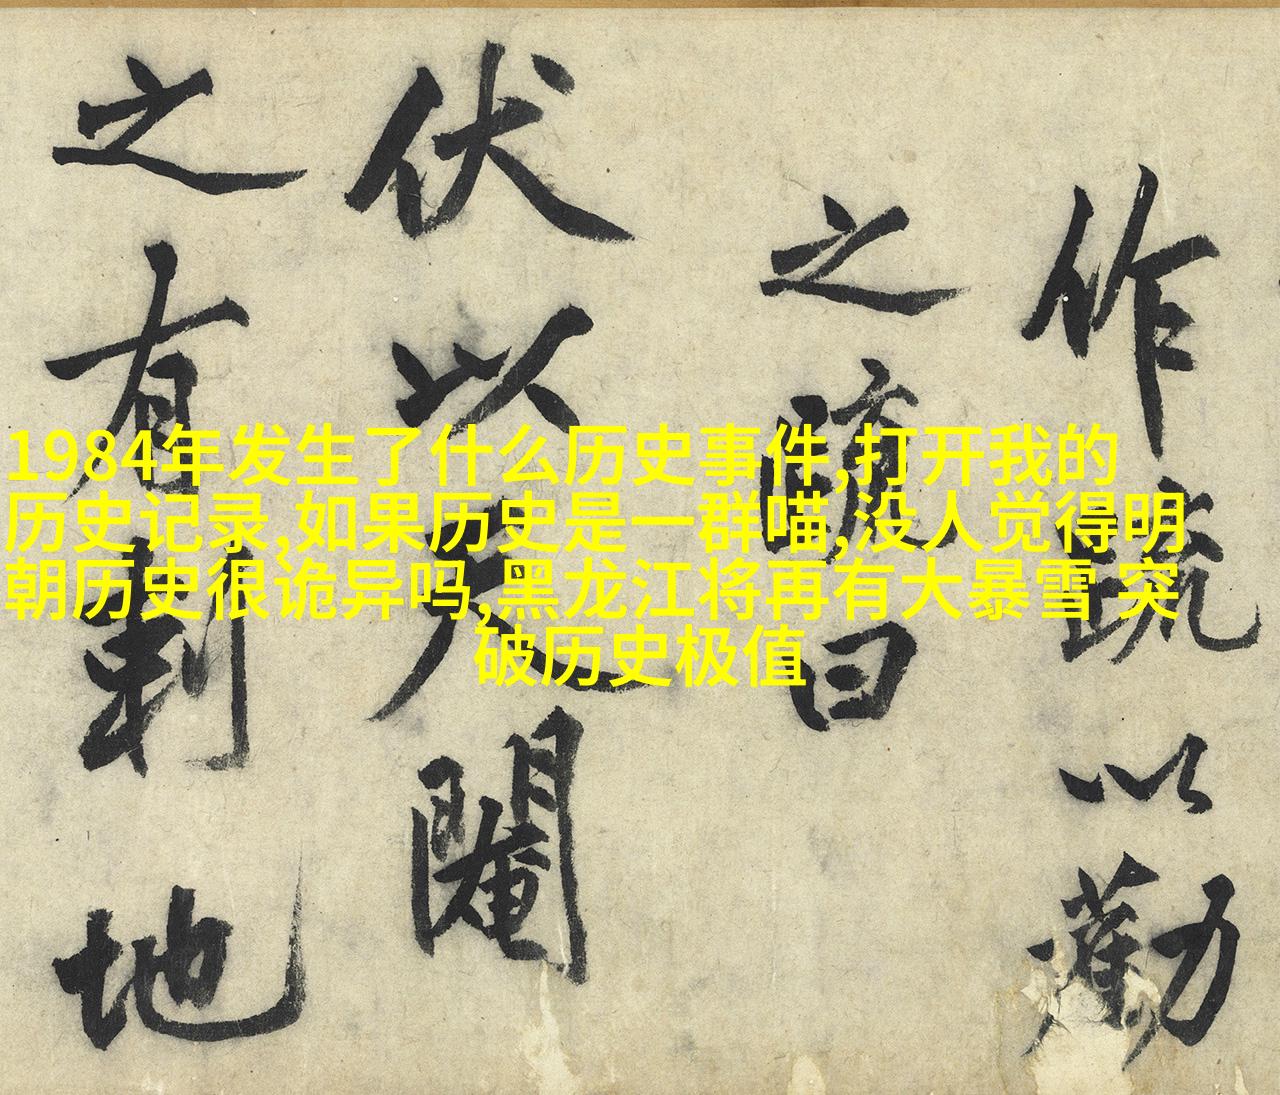 1984年发生了什么历史事件,打开我的
历史记录,如果历史是一群喵,没人觉得明
朝历史很诡异吗,黑龙江将再有大暴雪 突
破历史极值
作疏以勸
之疏曰
伏以
之有地